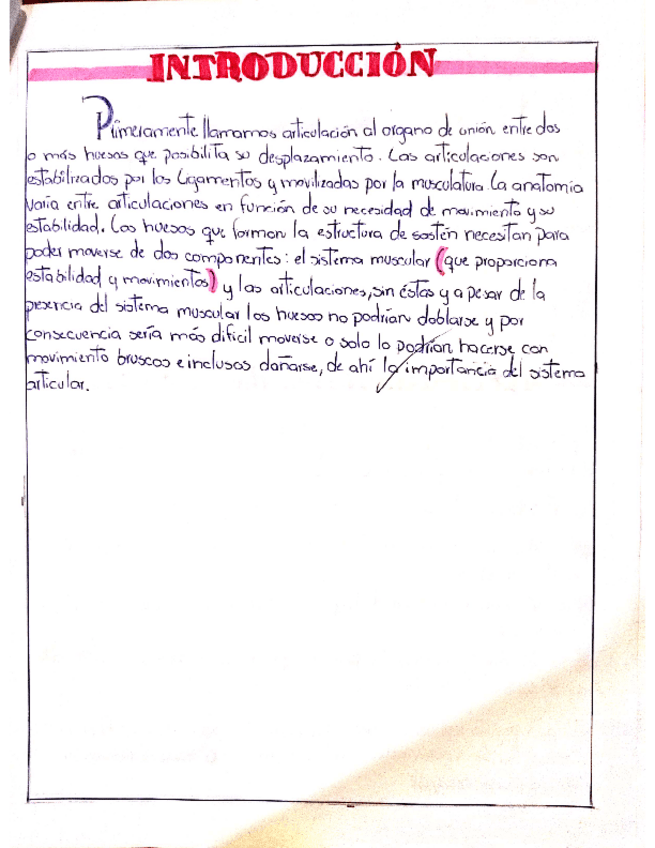 INTRODUCCIÓN
Primeramente llamamos articulación al organo de unión entre dos
o más huesos que posibilita su desplazamiento. Las articulaciones son
estabilizados por los Ligamentos y movilizadas por la musculatura. La anatomía
Varía entre articulaciones en función de su necesidad de movimiento y su
estabilidad. Los huesos que forman la estructura de sostén necesitan para
poder moverse de dos componentes: el sistema muscular (que proporciona
estabilidad y movimientos) y las articulaciones, sin éstas y a pesar de la
presencia del sistema muscular los huesos no podrían doblarse y por
consecuencia sería más dificil moverse o solo lo podrían hacerse con
movimiento bruscos e inclusos dañarse, de ahí la importancia del sistema
articular.